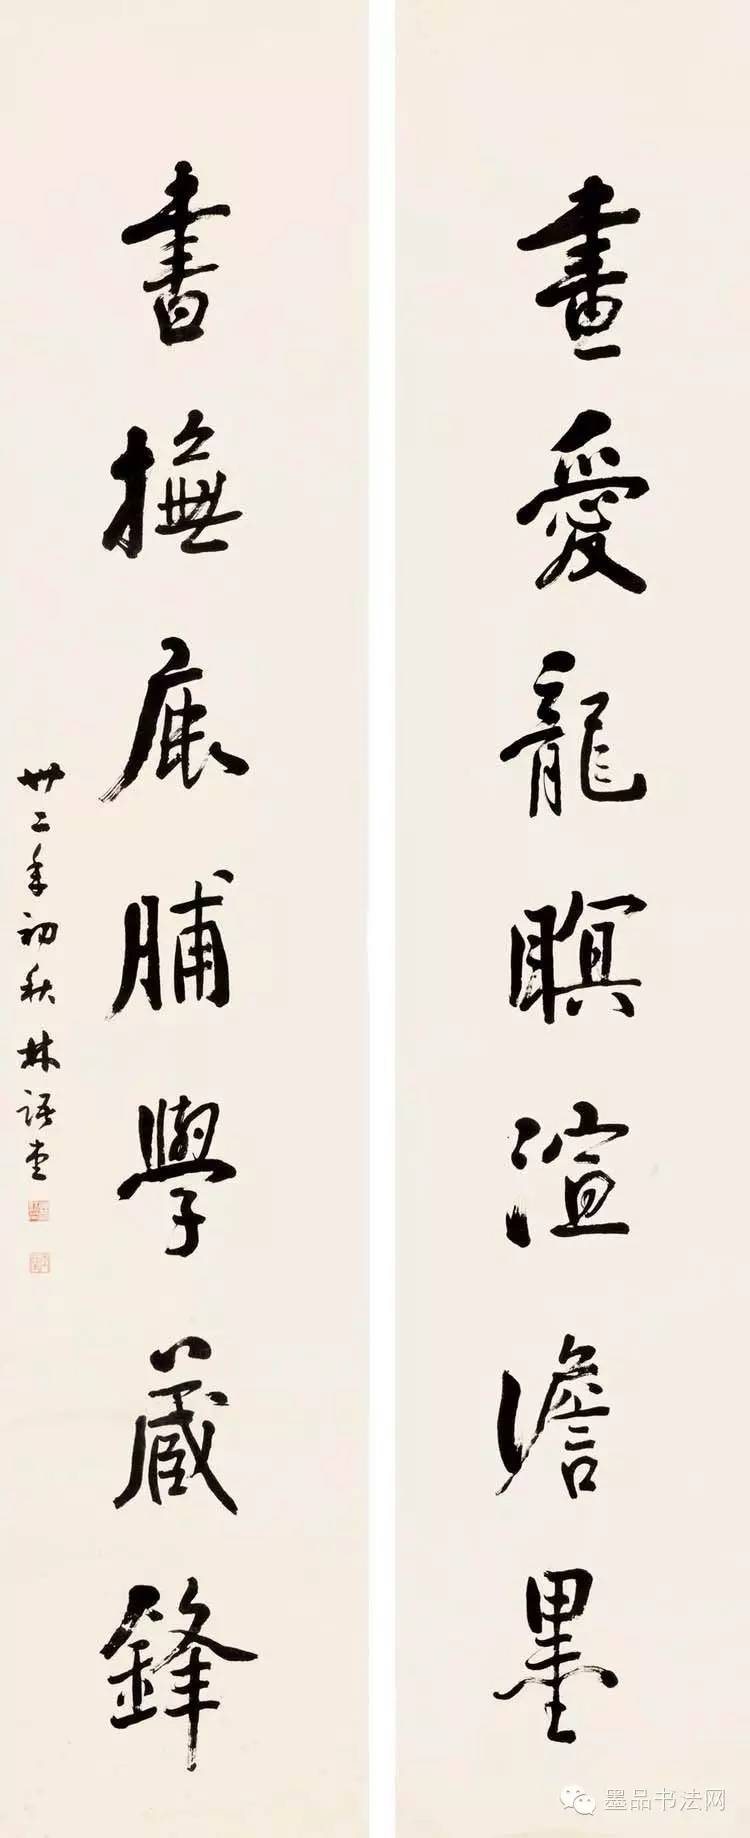 畫愛龍瞑渲澹墨
書撫鹿脯學藏鋒
卅二年初秋林語堂
墨品书法网